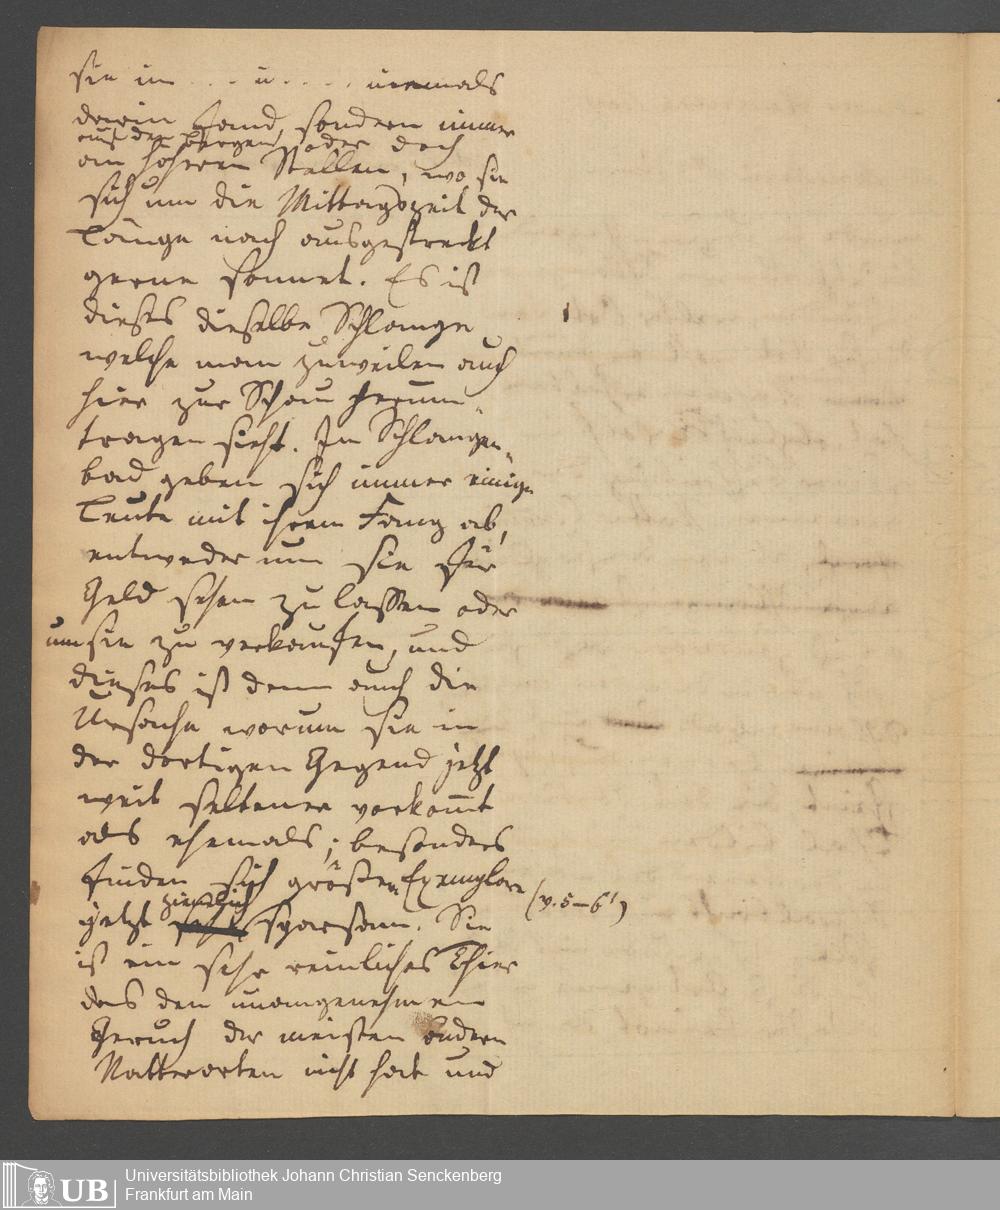 sie im . . . u. . . . . niemals
darin fand, sondern immer
auf den Bergen, oder doch
an höheren Stellen, wo sie
sich um die Mittagszeit der
Länge nach ausgestreckt
gerne sonnet. Es ist
dieses dieselbe Schlange
welche man zuweilen auch
hier zur Schau herum-
tragen sieht. In Schlangen-
bad geben sich immer einige
Leute mit ihrem Fang ab,
entweder um sie für
Geld sehen zu lassen oder
um sie zu verkaufen, und
dieses ist denn auch die
Ursache warum sie in
der dortigen Gegend jetzt
weit seltener vorkom̅t
als ehemals; besonders
finden sich größere Exemplare (v. 5–6')
jetzt ziemlich sparsam. Sie
ist ein sehr reinliches Thier
das den unangenehmen
Geruch der meisten andern
Natterarten nicht hat und
UB
Universitätsbibliothek Johann Christian Senckenberg
Frankfurt am Main